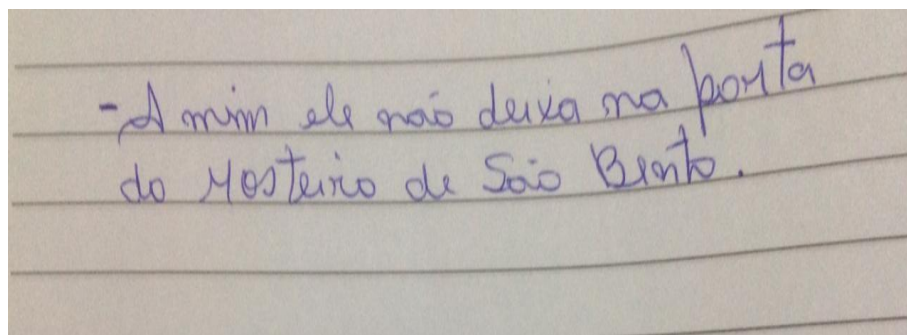 - A mim ele não deixa na porta
do Mosteiro de São Bento.